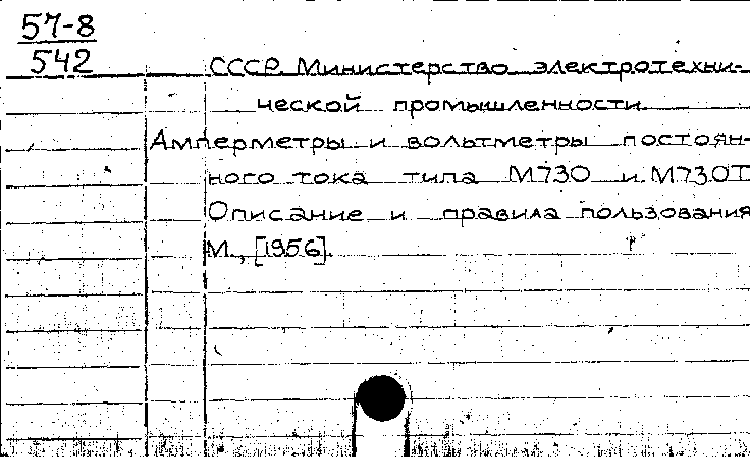 57-8
542
СССР. Министерство электротехни-
ческой промышленности.
Амперметры и вольтметры постоян-
ного тока типа М730 и М730Т
Описание и правила пользования
М., [1956].